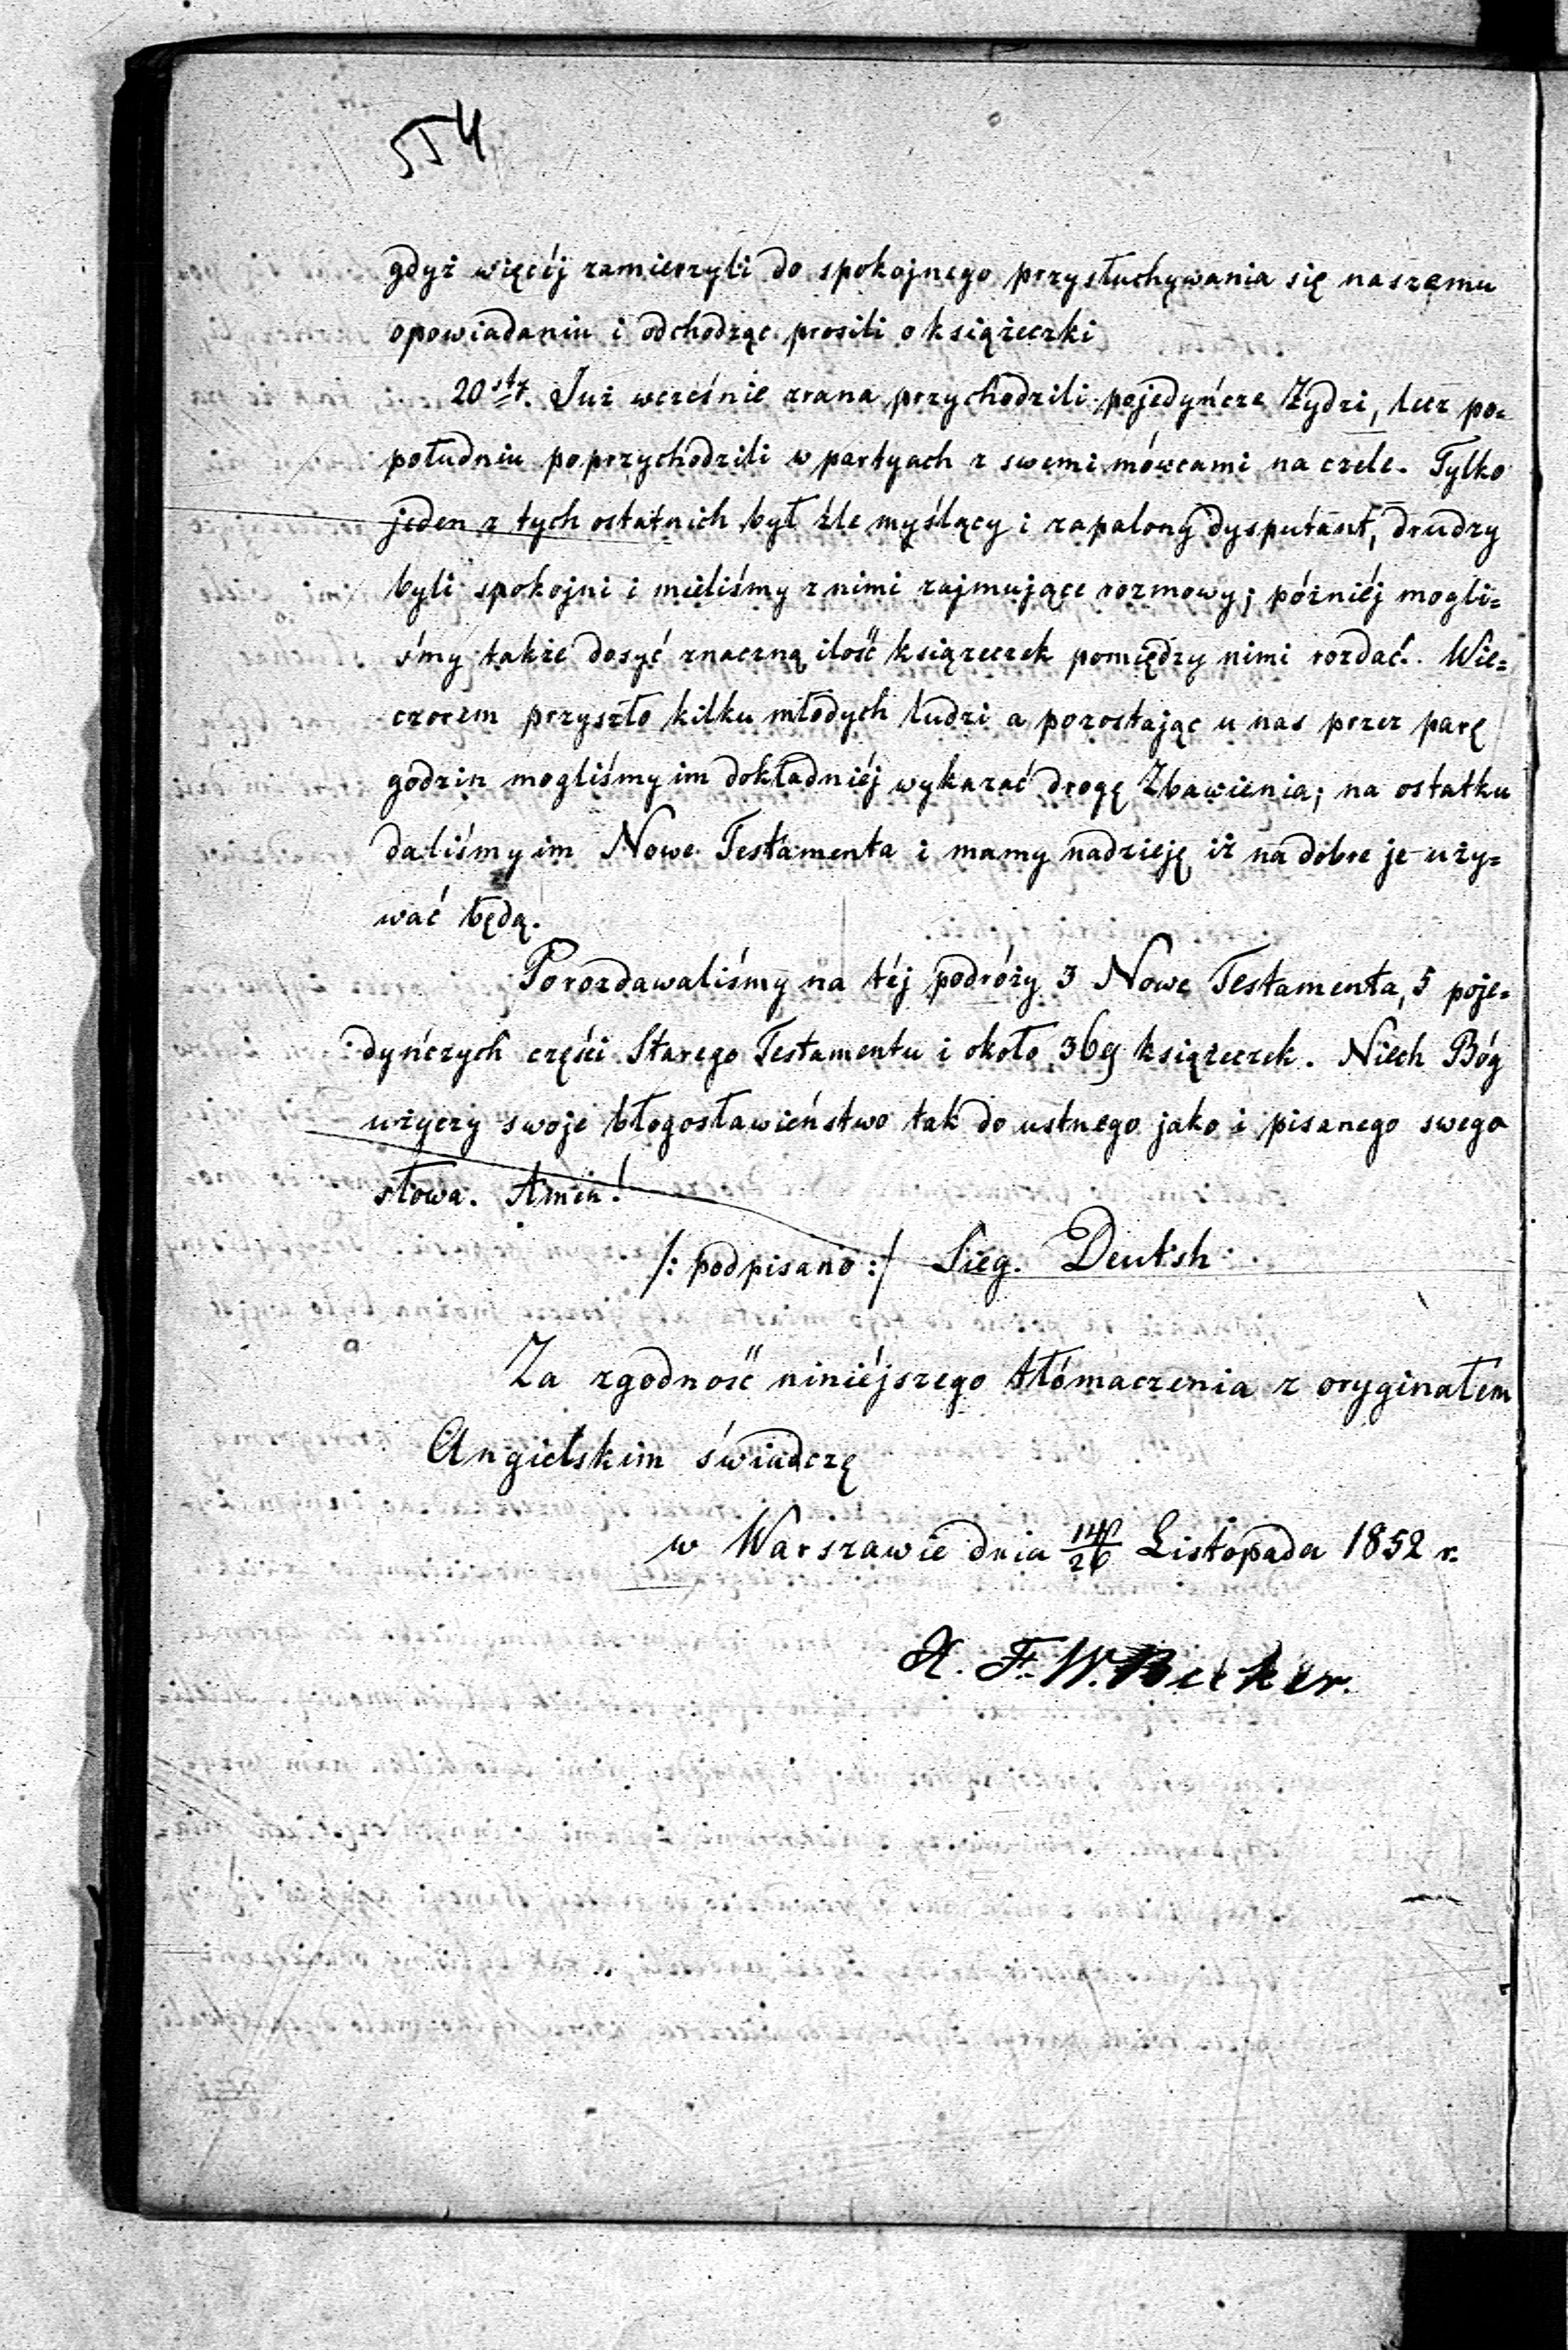 554
gdyż więcéj zamierzyli do spokojnego przysłuchywania się naszemu
opowiadaniu i odchodząc prosili o książeczki
20sty. Już wcześnie zrana przychodzili pojedyńcze Żydzi, lecz po=
południu poprzychodzili w partyach z swemi mówcami na czele. Tylko
jeden z tych ostatnich był źle myślący i zapalony dysputant, drudzy
byli spokojni i mieliśmy z nimi zajmujące rozmowy; późniéj mogli=
śmy także dosyć znaczną ilość książeczek pomiędzy nimi rozdać. Wie=
czorem przyszło kilku młodych ludzi a pozostając u nas przez parę
godzin mogliśmy im dokładniéj wykazać drogę Zbawienia; na ostatku
daliśmy im Nowe Testamenta i mamy nadzieję iż na dobre je uży=
wać będą.
Porozdawaliśmy na téj podróży 3 Nowe Testamenta, 5 poje=
dyńczych części Starego Testamentu i około 369 książeczek. Niech Bóg
użyczy swoje błogosławieństwo tak do ustnego jako i pisanego swego
słowa. Amen!
/: podpisano :/ Sieg. Deutsh
Za zgodność niniéjszego tłómaczenia z oryginałem
Angielskim świadczę
w Warszawie dnia 14/26 Listopada 1852 r.
F. W. Becker.